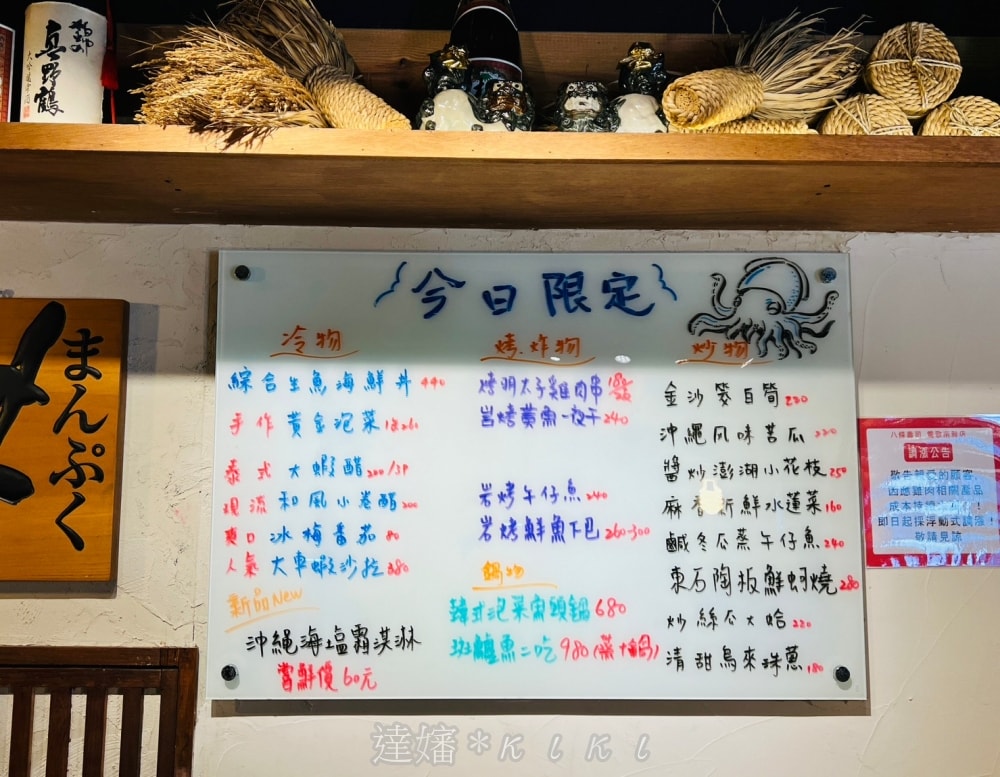 真野鶴
まんぷく
今日限定
冷物
綜合生魚海鮮丼 440
手作 黃金泡菜
泰式 大蝦醋 200/3P
現流 和風小卷醋 200
爽口 冰梅番茄 80
人氣 大車蝦沙拉 380
新品New
沖繩海塩霜淇淋
嘗鮮優60元
烤.炸物
烤明太子雞肉串
岩烤黃魚一夜干 240
岩烤午仔魚 240
岩烤鮮魚下巴 260-300
鍋物
韓式泡菜魚頭鍋 680
斑鱸魚二吃 980
炒物
金沙筊白筍 220
沖繩風味苦瓜 220
醬炒澎湖小花枝 250
麻香新鮮水蓮菜 160
鹹冬瓜蒸午仔魚 240
東石陶板鮮蚵燒 280
炒絲瓜大蛤 220
清甜烏來珠蔥 180
調漲公告
敬告親愛的顧客
因應雞肉相關產品
成本持續
即日起採浮動式調漲!
敬請見諒
達嬸*KIKI